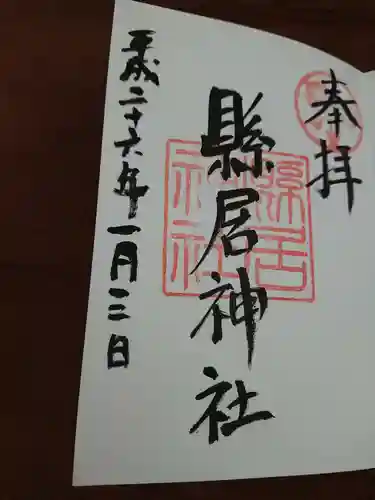 奉拝
縣居神社
平成二十六年一月三日
縣居神社